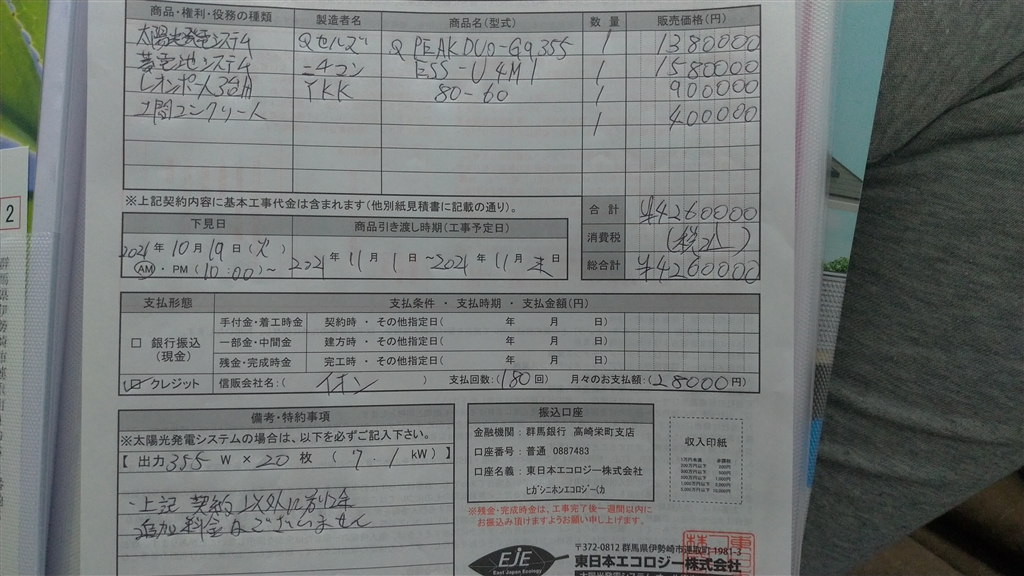 商品・権利・役務の種類 製造者名 商品名(型式) 数量 販売価格(円)
太陽光発電システム Qセルズ Q PEAK DUO-G9 355 1 1380000
蓄電池システム ニチコン ESS-U4M1 1 1580000
レオンポート3台用 YKK 80-60 1 900000
土間コンクリート 1 400000
※上記契約内容に基本工事代金は含まれます(他別紙見積書に記載の通り)。
合計 ¥4260000
消費税 (税込)
総合計 ¥4260000
下見日 商品引き渡し時期(工事予定日)
2021年10月19日(火)
AM・PM(10:00)~
2021年11月1日~2021年11月末日
支払形態 支払条件・支払時期・支払金額(円)
□ 銀行振込
(現金)
手付金・着工時金 契約時・その他指定日( 年 月 日)
一部金・中間金 建方時・その他指定日( 年 月 日)
残金・完成時金 完工時・その他指定日( 年 月 日)
☑ クレジット 信販会社名:( イオン ) 支払回数:(180回) 月々のお支払額:(28000円)
備考・特約事項
※太陽光発電システムの場合は、以下を必ずご記入下さい。
【 出力355 W × 20 枚 ( 7.1 kW) 】
・上記契約以外に別途
追加料金はございません
振込口座
金融機関:群馬銀行 高崎栄町支店
口座番号:普通 0887483
口座名義:東日本エコロジー株式会社
ヒガシニホンエコロジー(カ
※残金・完成時金は、工事完了後一週間以内に
お振込み頂けますようお願い申し上げます。
収入印紙
EJE
East Japan Ecology
〒372-0812 群馬県伊勢崎市連取町1981-3
東日本エコロジー株式会社
2